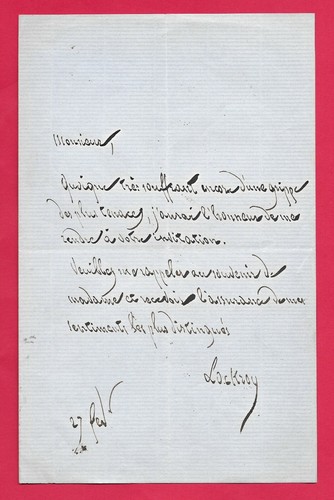 Monsieur,
Quoique très souffrant encore d'une grippe
des plus tenaces, j'aurai l'honneur de me
rendre à votre invitation.
Veuillez me rappeler au souvenir de
madame et recevoir l'assurance de mes
sentiments les plus distingués
Lockroy
27 fev^r